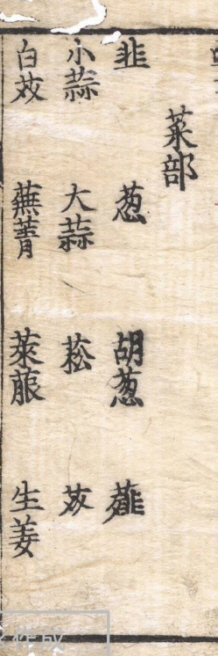 菜部
韭 葱 胡葱 薤
小蒜 大蒜 菘 芥
白芥 蕪菁 萊菔 生姜